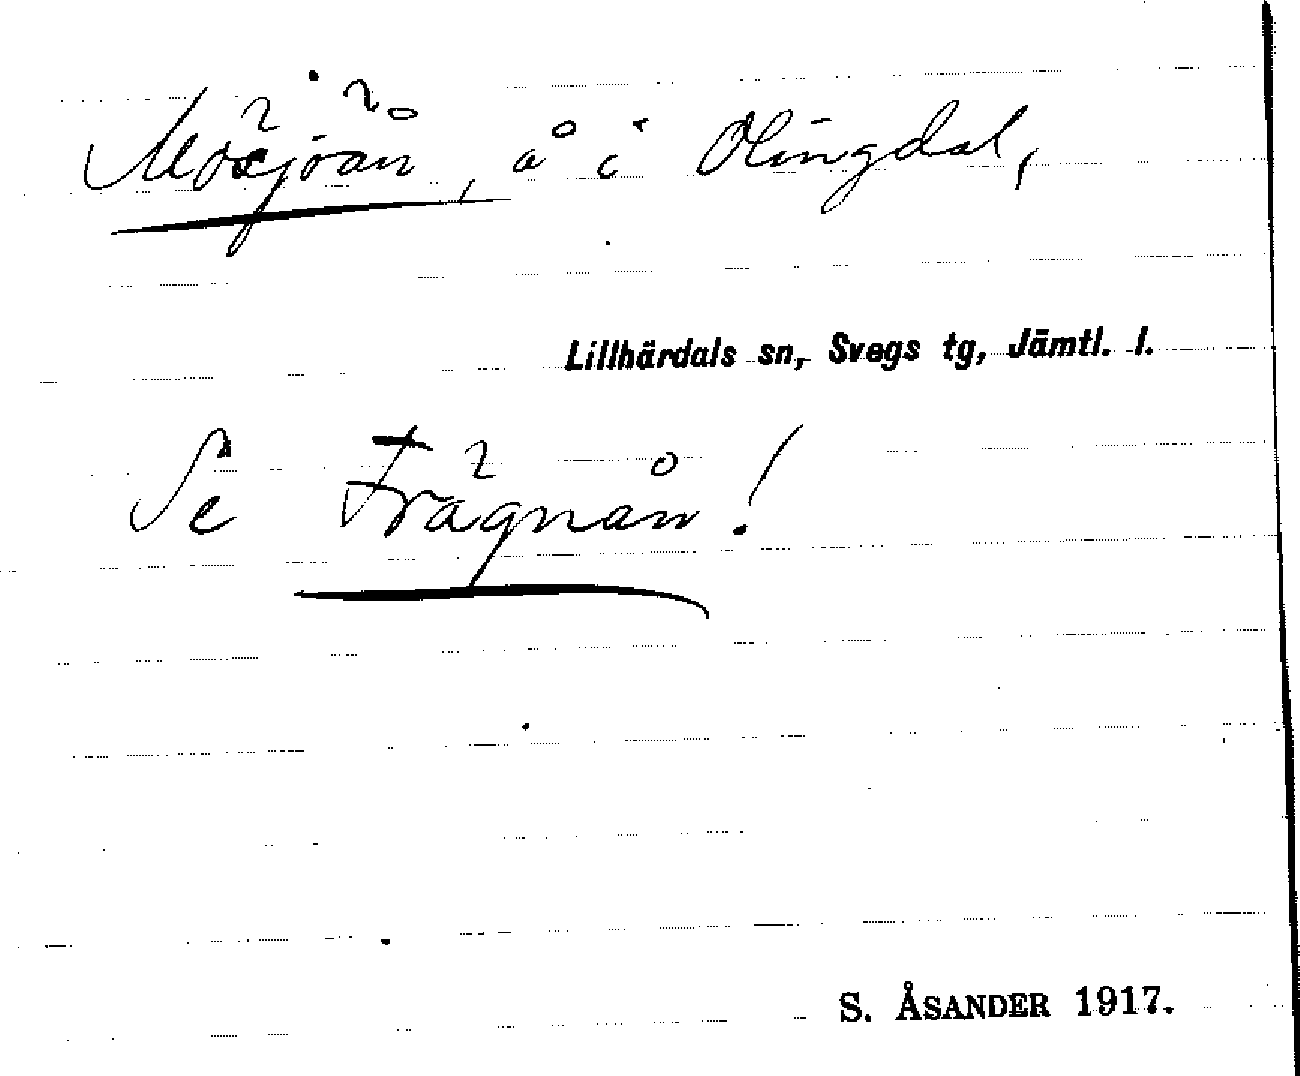 Mösjöån, å i Olingdal,
Lillhärdals sn, Svegs tg, Jämtl. l.
Se Frägnån!
S. ÅSANDER 1917.